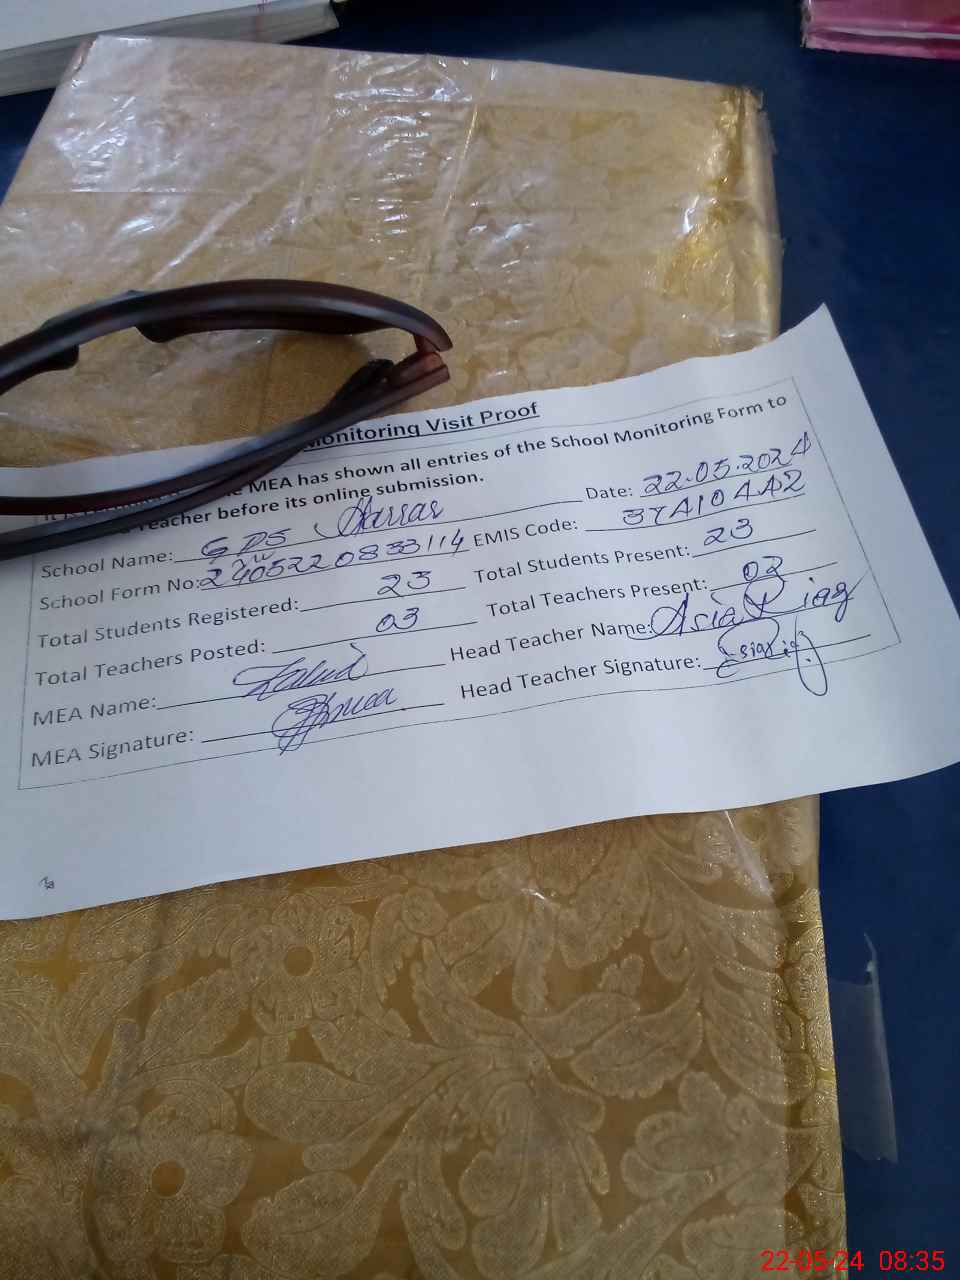 Monitoring Visit Proof
MEA has shown all entries of the School Monitoring Form to
Teacher before its online submission.
School Name: GPS Harrar Date: 22.05.2024
School Form No: 2405220833114 EMIS Code: 37410442
Total Students Registered: 23 Total Students Present: 23
Total Teachers Posted: 03 Total Teachers Present: 02
MEA Name: Head Teacher Name: Asia Riag
MEA Signature: Head Teacher Signature:
22-05-24 08:35